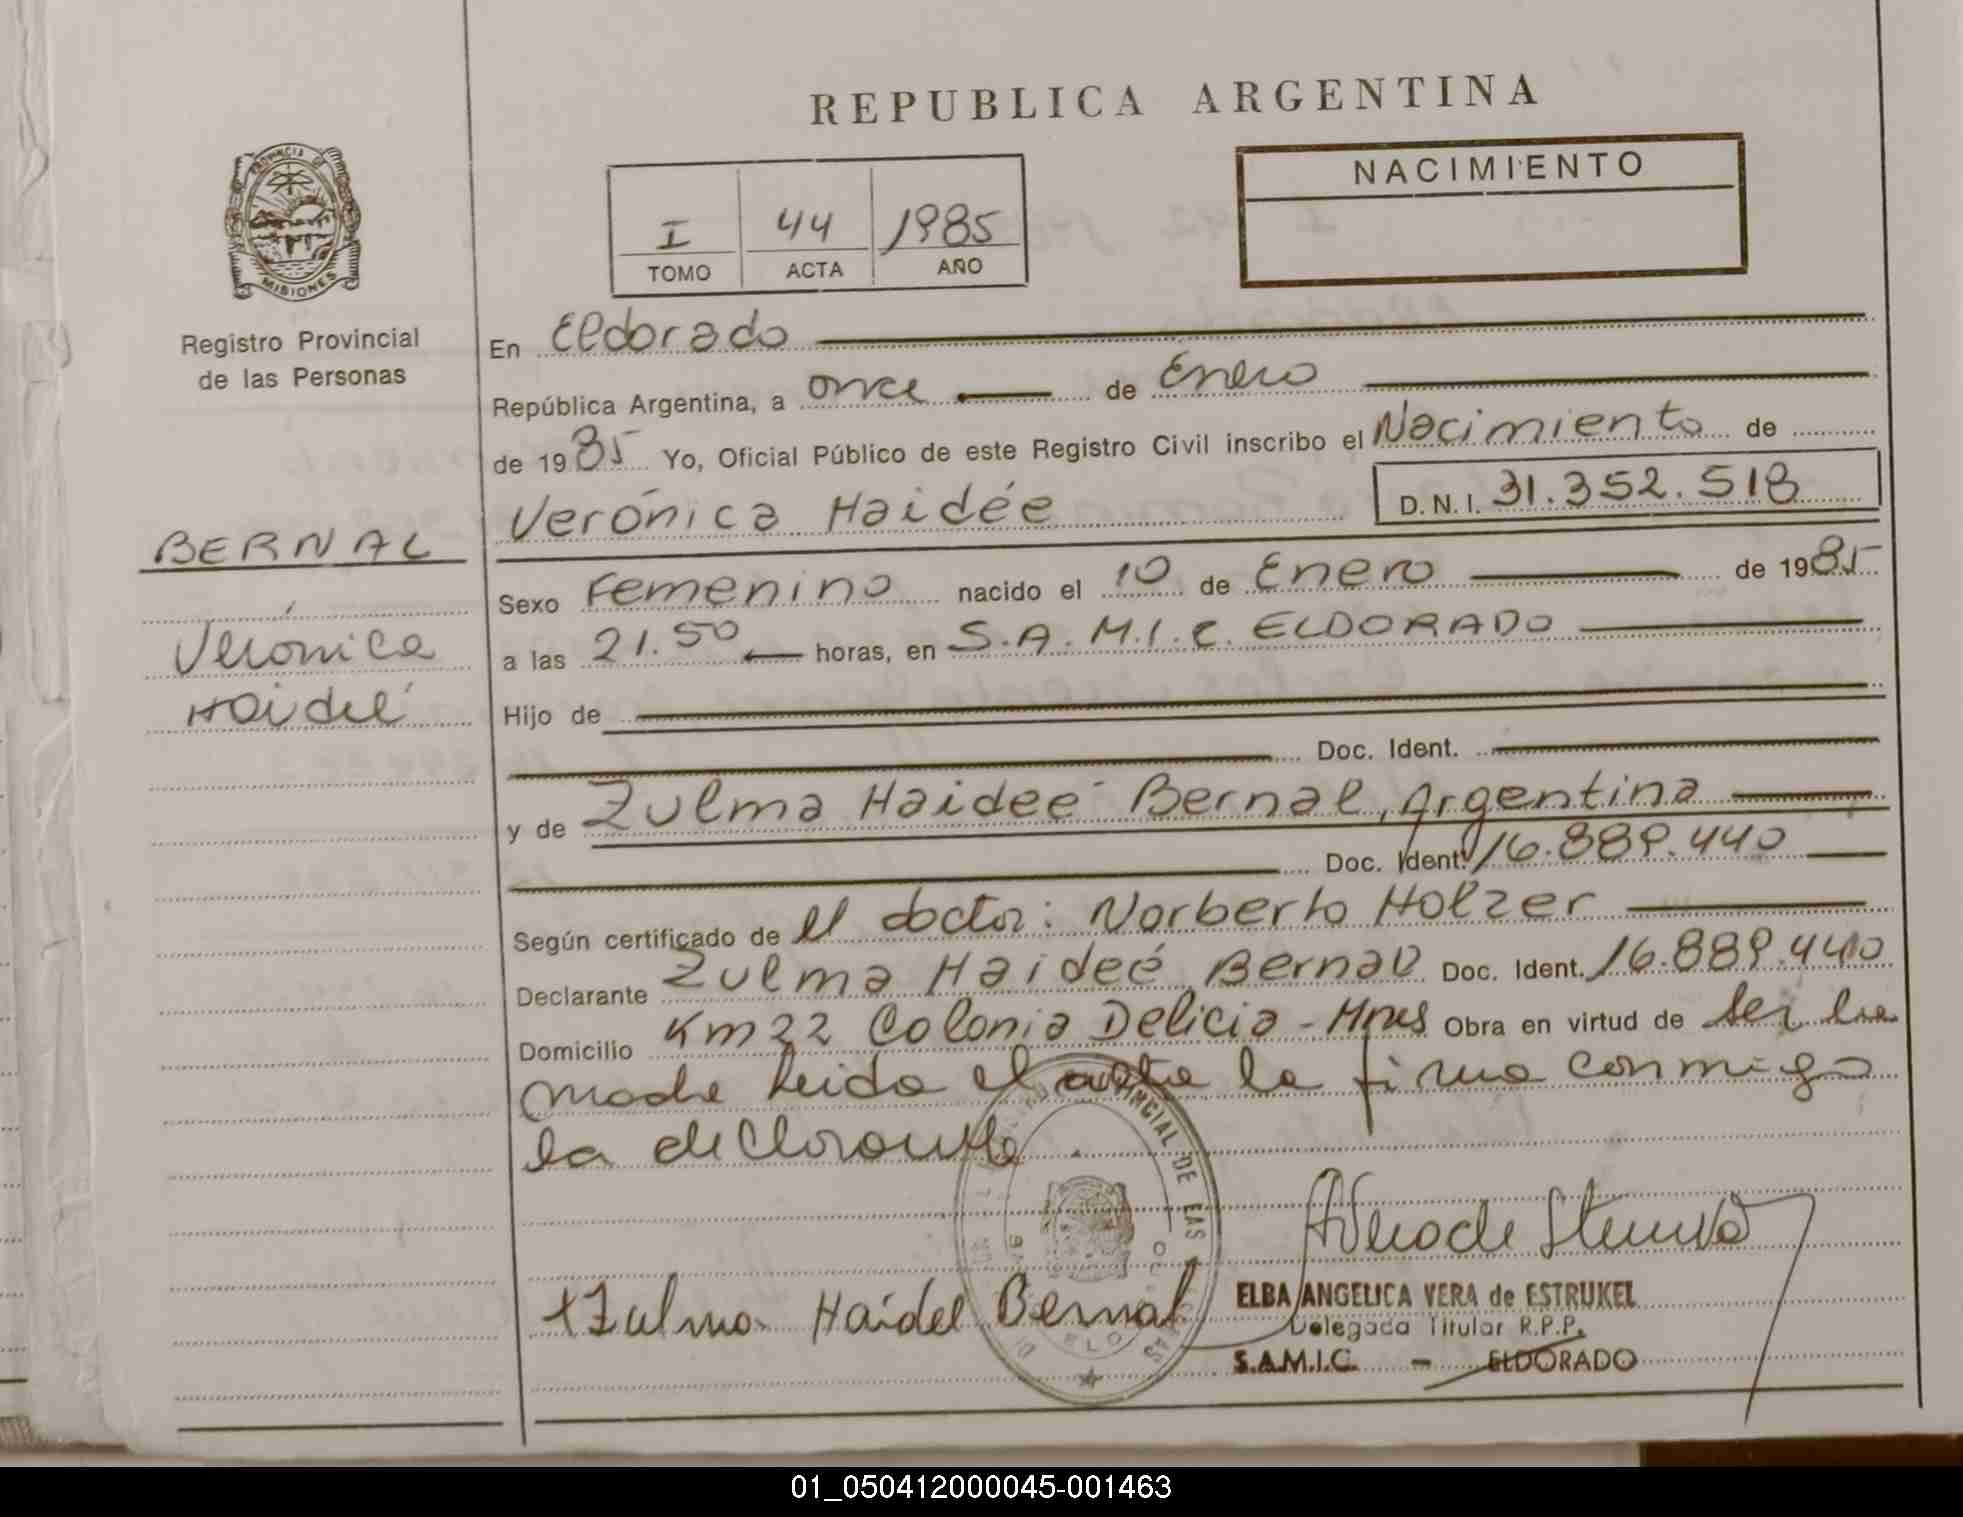 REPUBLICA ARGENTINA
PROVINCIA DE MISIONES
Registro Provincial
de las Personas
I 44 1985
TOMO ACTA AÑO
NACIMIENTO
En Eldorado
República Argentina, a once de Enero
de 1985 Yo, Oficial Público de este Registro Civil inscribo el Nacimiento de
Verónica Haidée D.N.I. 31.352.518
BERNAL
Verónica
Haideé
Sexo Femenino nacido el 10 de Enero de 1985
a las 21.50 horas, en S.A.M.I.C. ELDORADO
Hijo de
Doc. Ident.
y de Zulma Haideé Bernal, Argentina
Doc. Ident. 16.889.440
Según certificado de el doctor: Norberto Holzer
Declarante Zulma Haideé Bernal Doc. Ident. 16.889.440
Domicilio Km 22 Colonia Delicia - Mnes Obra en virtud de ser la
madre leida el acta la firma conmigo
la declarante
PROVINCIAL DE LAS
Zulma Haidee Bernal
ELBA ANGELICA VERA de ESTRUKEL
Delegada Titular R.P.P.
S.A.M.I.C. - ELDORADO
01_050412000045-001463